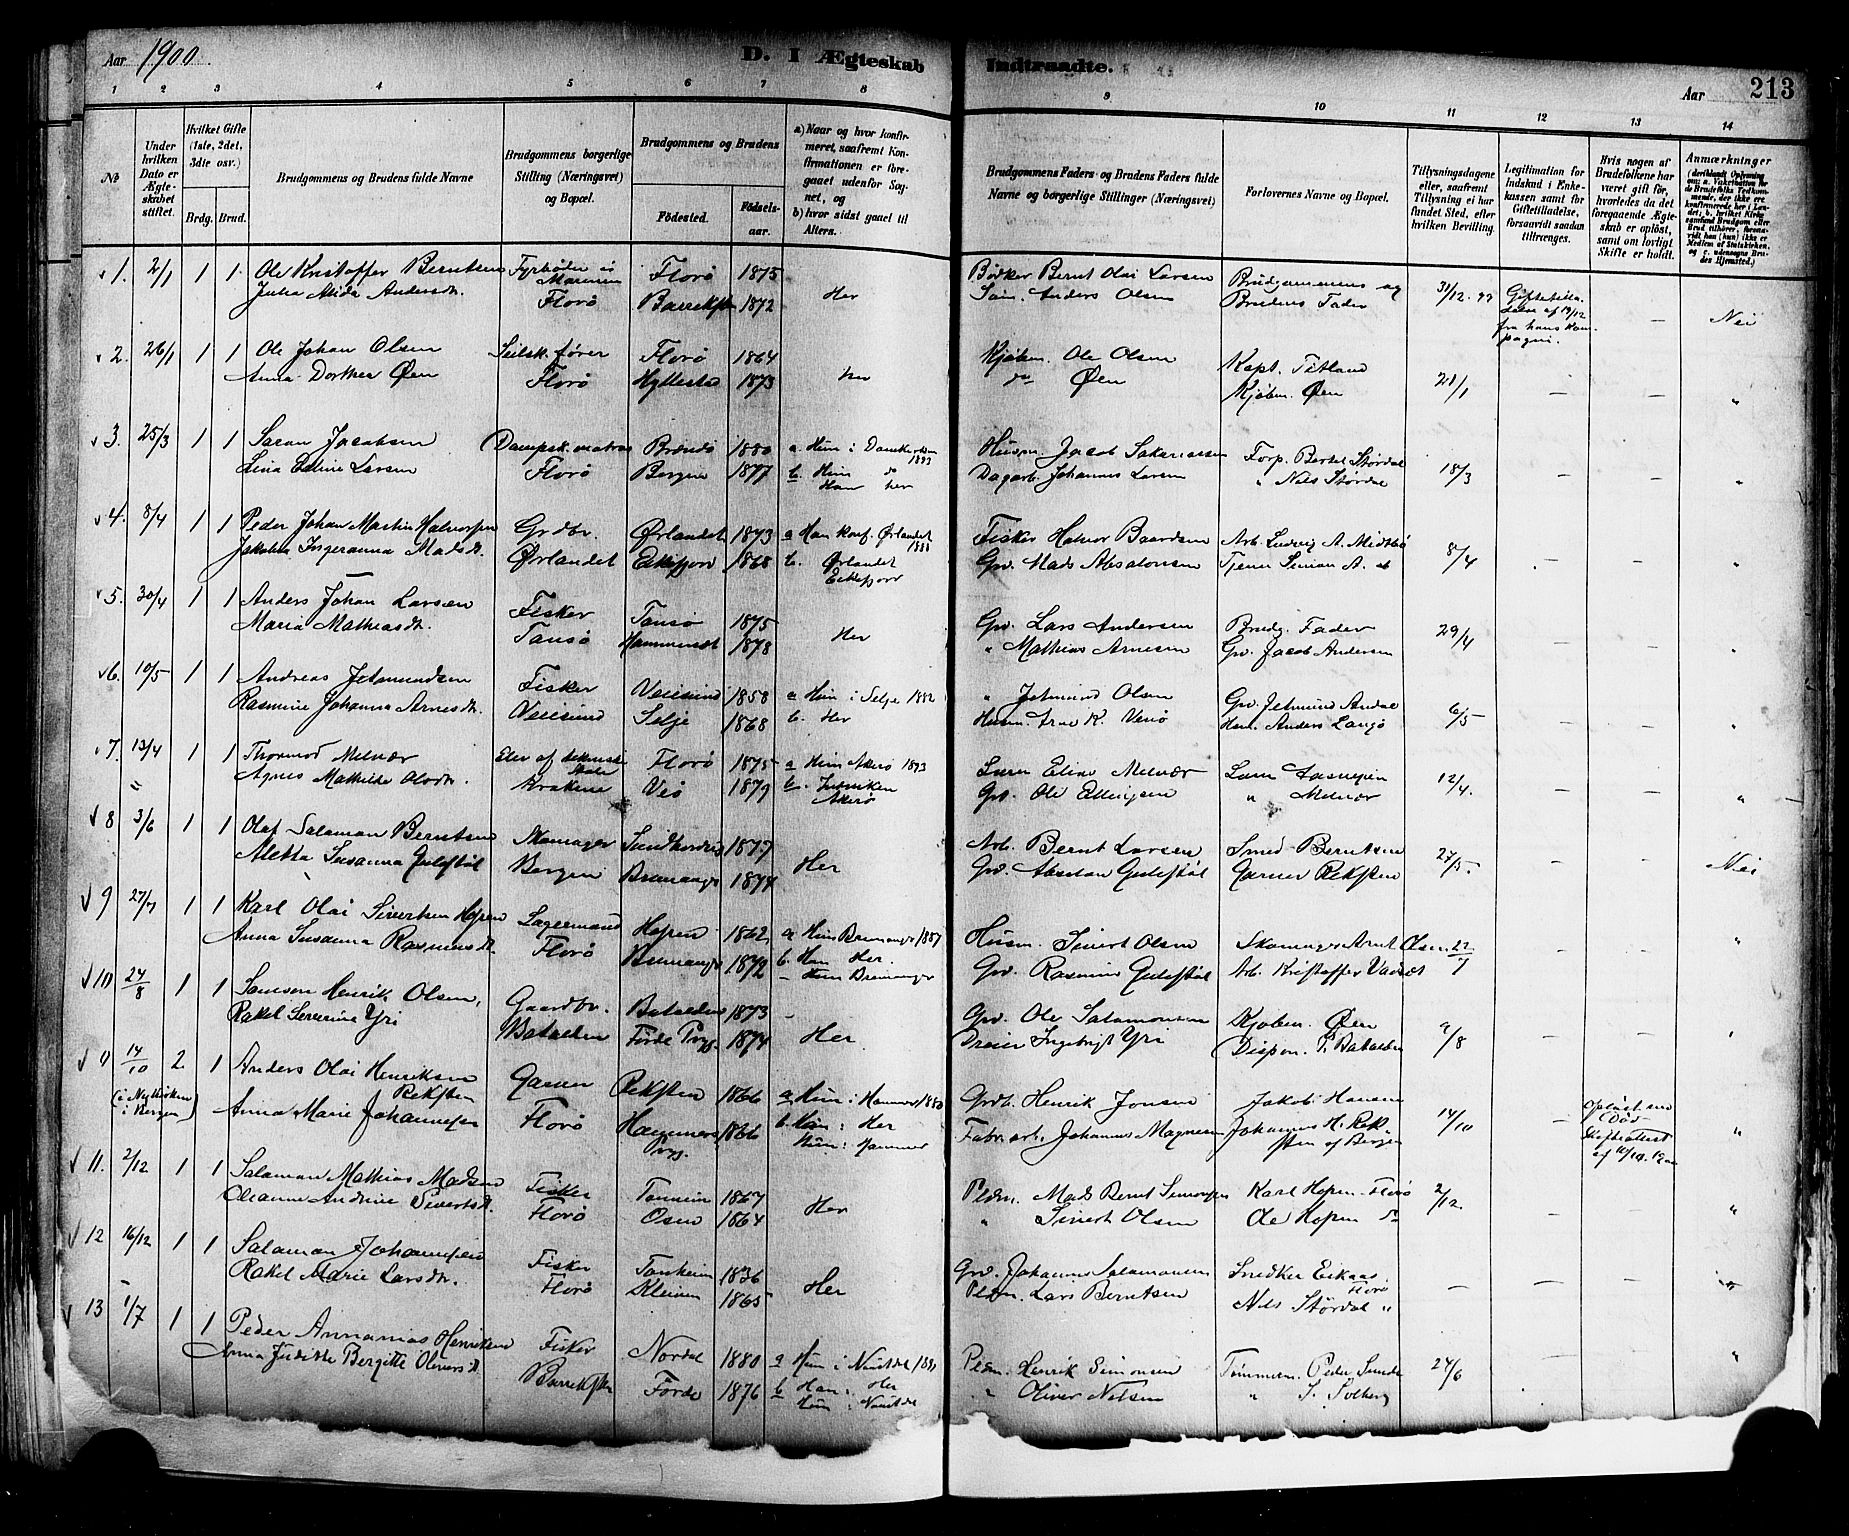 Aar 1900. D. I Ægteskab Indtraadte. Aar 213
1 2 3 4 5 6 7 8 9 10 11 12 13 14
No
Under hvilken Dato er Ægteskabet stiftet.
Hvilket Gifte (1ste, 2det, 3die osv.)
Brdg. Brud.
Brudgommens og Brudens fulde Navne
Brudgommens borgerlige Stilling (Næringsvei) og Bopæl.
Brudgommens og Brudens
Fødested. Fødselsaar.
a) Naar og hvor konfirmeret, saafremt Konfirmationen er foregaaet udenfor Sognet, og
b) hvor sidst gaaet til Alters.
Brudgommens Faders og Brudens Faders fulde Navne og borgerlige Stillinger (Næringsvei)
Forlovernes Navne og Bopæl.
Tillysningsdagene eller, saafremt Tillysning ei har fundet Sted, efter hvilken Bevilling.
Legitimation for Indskud i Enkekassen samt for Giftetilladelse, forsaavidt saadan tiltrænges.
Hvis nogen af Brudefolkene har været gift før, hvorledes da det foregaaende Ægteskab er opløst, samt om lovligt Skifte er holdt.
Anmærkninger
1. 2/1 1 1 Ole Kristoffer Berntsen Fyrbøder i Marinen Florø 1875 Bødker Bernt Olai Larsen Brudgommens og 31/12 99 Nei
Julia Alida Andersdtr. Florø Barreksten 1872 Her Anders Olsen Brudens Fader
2. 26/1 1 1 Ole Johan Olsen Seilsk.fører Florø 1864 Kjøbm. Ole Olsen Kapt. Tetland 21/1
Anna Dorthea Øen Florø Hyllestad 1873 her do Øen Kjøbm. Øen
3. 25/3 1 1 Jacobsen Dampsk.matros 1880 a Hun i Husm. Jacob Sakariassen Forp. Bertel Størdal 18/3
Lina Larsen Florø Bergen 1877 b. Hun do Han her Dagarb. Johannes Larsen " Nils Størdal
4. 8/4 1 1 Peder Johan Martin Halvorsen Grdbr. Ørlandet 1873 a Han konf. Ørlandet 1888 Fisker Halvor Baardsen Arb. Ludvig A. Midtbø 8/4
Jakobea Ingeranna Madsdtr. Ørlandet Eikefjord 1868 b. Ørlandet Eikefjord Gbr. Mads Absalonsen Tjener Simon A. do
5. 30/4 1 1 Anders Johan Larsen Fisker Tansø 1875 Gbr. Lars Andersen Brudg. Fader 29/4
Maria Mathiasdtr. Tansø Hammerset 1878 Her " Mathias Arnesen Gbr. Jacob Andersen
6. 10/5 1 1 Andreas Jetmundsen Fisker Veiesund 1858 a Hun i Selje 1882 " Jetmund Olsen Gbr. Jetmund 6/5
Rasmine Johanna Arnesdtr. Veiesund Selje 1868 b. Her Husm. Arne K. Verø Anders Langø
7. 13/4 1 1 Thormod Melvær Elev af tekniske Skole Florø 1875 a Hun Askerø 1893 Elias Melvær 12/4.
Agnes Mathilde Olsdtr. Veø 1879 Gbr. Ole Ellingsen " Melvær
8 3/6 1 1 Olaf Salamon Berntsen Skomager 1877 Arb. Bernt Larsen Smed Berntsen 27/5. Nei
Aletta Susanna Gulestøl Bergen Bremanger 1874 Her Gbr. Absalon Gulestøl Garver Reksten
9 27/7 1 1 Karl Olai Sivertsen Hopen Lagermand Hopen 1862 a Hun Bremanger 1887 Husm. Sivert Olsen Skomager Arnt Olsen 22/7
Anna Susanna Rasmusdtr. Florø Bremanger 1872 b. Han Her. Hun Bremanger Gbr. Rasmus Gulestøl Arb. Kristoffer Vadset
10 24/8 1 1 Samson Henrik Olsen Gaardbr. Batalden 1873 Gbr. Ole Salamonsen Kjøbm. Øen 9/8
Rakel Severine Yri Batalden Førde Prgj. 1874 Her Dreier Ingebrigt Yri Dispon. Batalden
11 14/10 2 1 Anders Olai Henriksen Reksten Garver Reksten 1866 a Hun i Hammer 1880 Grdb. Henrik Jonsen Jakob Hansen 14/10 opløst ved Død
(i Nykirken i Bergen) Anna Marie Johannesen Florø Hammers Prgj. 1866 b. Han: Her Hun: Hammer Fabr.arb. Johannes Magnesen Johannes H. Reksten af Bergen Skifteattest af
11. 2/12 1 1 Salamon Mathias Madsen Fisker Tonheim 1867 Pldsm. Mads Bernt Simonsen Karl Hopen Florø 2/12
Oleanne Andrine Sivertsdtr. Florø Osen 1864 Her " Sivert Olsen Ole Hopen do
12 16/12 1 1 Salamon Johannesen Fisker Tonheim 1836 Gbr. Johannes Salamonsen Snedker Eikaas Florø
Rakel Marie Larsdtr. Florø Kleiven 1865 Her Pldsm. Lars Berntsen Nils Størdal "
13 1/7 1 1 Peder Annanias Henriksen Fisker Nordal 1880 a Hun i Pldsm. Henrik Simonsen Tømmerm. Peder Sunde 24/6
Anna Juditte Bergitte Oliversdtr. Barreksten Førde 1876 b Han: Her Hun: " Oliver Nilsen " S. Solberg